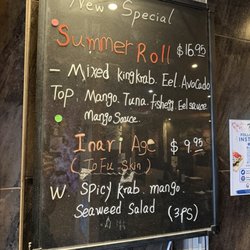 New Special
Summer Roll $16.95
- Mixed king krab. Eel. Avocado
Top. Mango. Tuna. fish egg Eel sauce
Mango Sauce.
Inari Age $9.95
(Tofu Skin)
W. Spicy krab. mango.
Seaweed Salad (3PS)